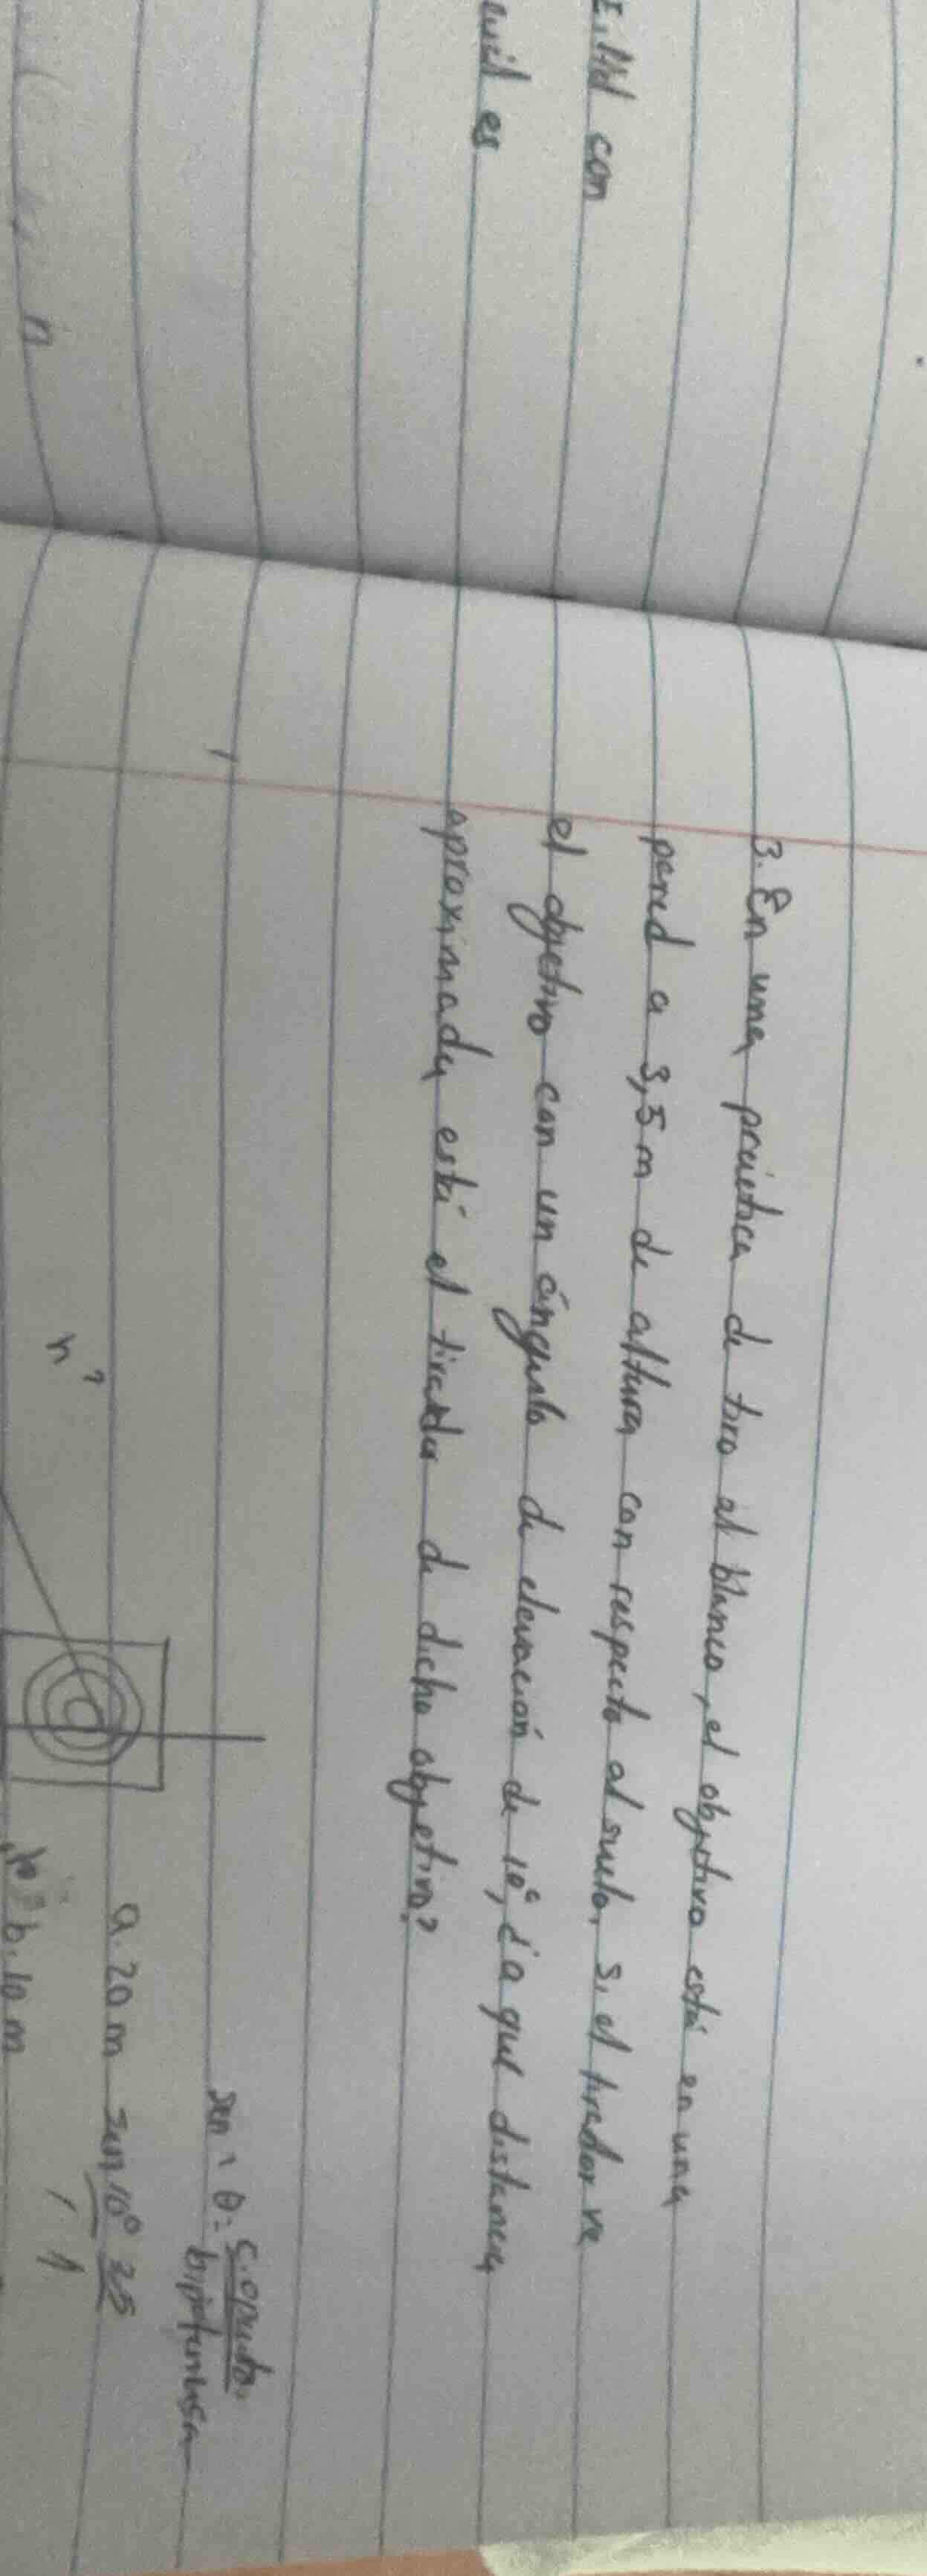 z. Hd con
cuál es
3. En una práctica de tiro al blanco, el objetivo está en una
pared a 3,5 m de altura con respecto al suelo, si el tirador ve
el objetivo con un ángulo de elevación de 10°, ¿a que distancia
aproximada está el tirador de dicho objetivo?
sen = θ = c. opuesto
hipotenusa
a. 20 m sen 10° 3.5
h? b. 10 m